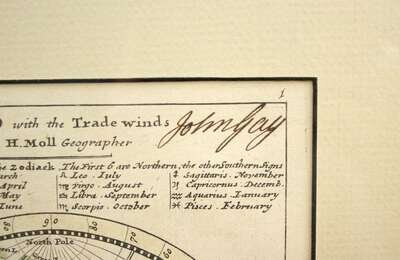 1
with the Trade winds
John Gay
H. Moll Geographer
he Zodiack, The First 6 are Northern, the other Southern Signs
arch ♌ Leo. July ♐ Sagittaris. November
April ♍ Virgo. August ♑ Capricornus. Decemb.
May ♎ Libra. September ♒ Aquarius. Ianuary
Iune ♏ Scorpio. October ♓ Pisces. February
North Pole
80
80
70
60
50